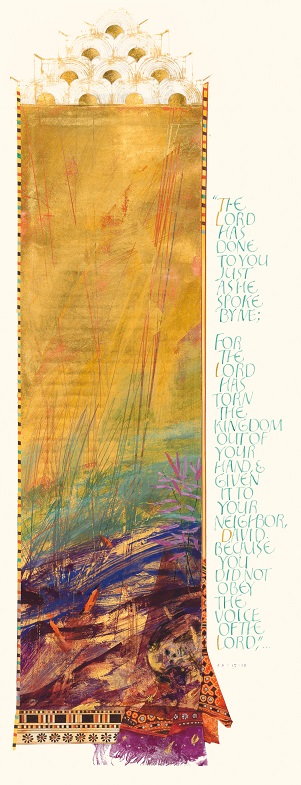 "THE
LORD
HAS
DONE
TO YOU
JUST
AS HE
SPOKE
BY ME;
FOR
THE
LORD
HAS
TORN
THE
KINGDOM
OUT OF
YOUR
HAND, &
GIVEN
IT TO
YOUR
NEIGHBOR,
DAVID.
BECAUSE
YOU
DID NOT
OBEY
THE
VOICE
OF THE
LORD,"...